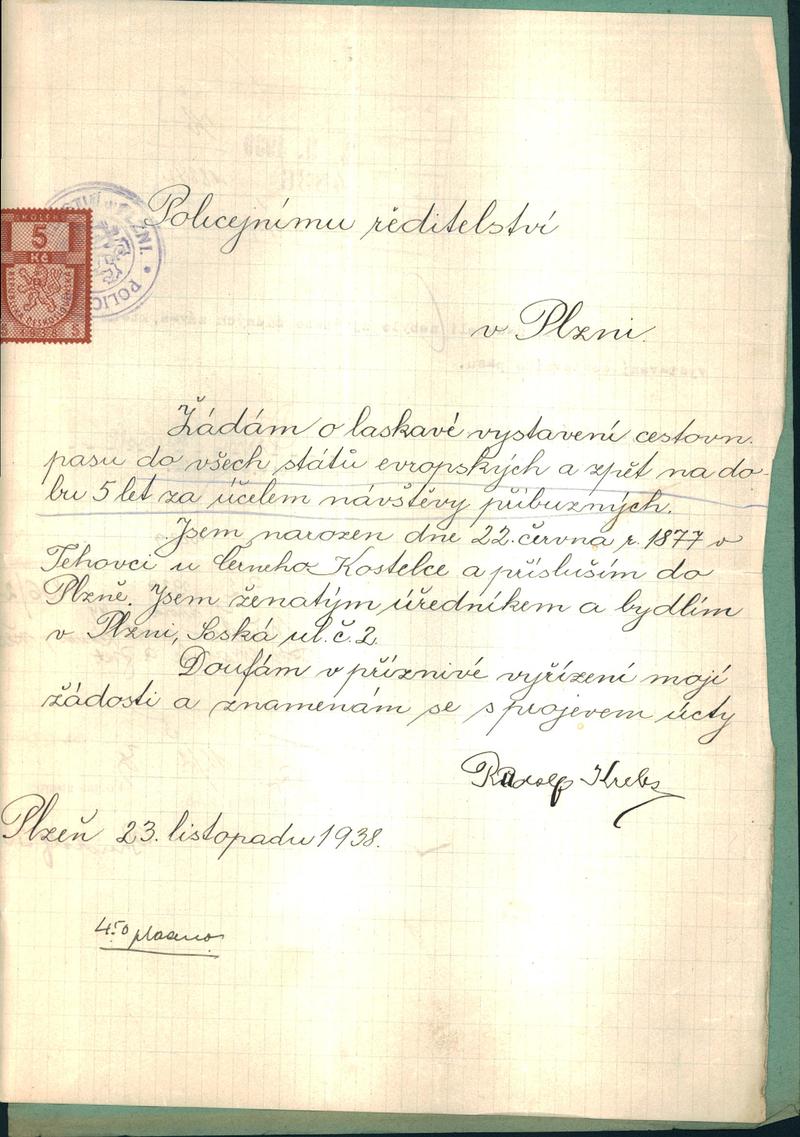 Policejnímu ředitelství
v Plzni.
5
Kč
PLZNI. • POLIC
Žádám o laskavé vystavení cestovn.
pasu do všech států evropských a zpět na do-
bu 5 let za účelem návštěvy příbuzných.
Jsem narozen dne 22. června r. 1877 v
Tehovci u Černeho Kostelce a přísluším do
Plzně. Jsem ženatým úředníkem a bydlím
v Plzni, ul. č. 2.
Doufám v příznivé vyřízení mojí
žádosti a znamenám se s projevem úcty
Rudolf Krebs
Plzeň 23. listopadu 1938.